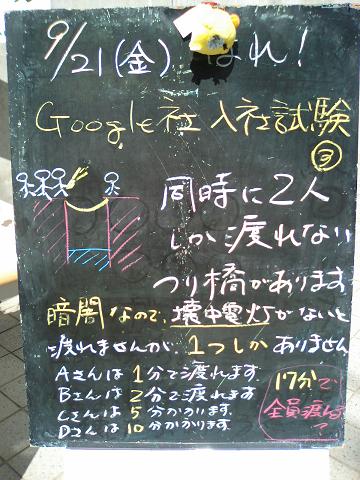 9/21(金) はれ!
Google社入社試験
③
同時に2人
しか渡れない
つり橋があります
暗闇なので、懐中電灯がないと
渡れませんが、1つしかありません
Aさんは1分で渡れます
Bさんは2分で渡れます
Cさんは5分かかります
Dさんは10分かかります
17分で
全員渡れる
?